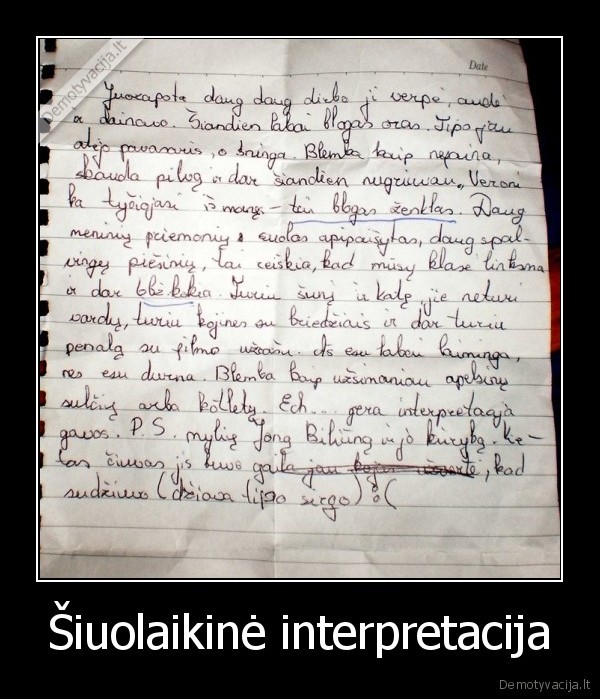 Demotyvacija.lt
Date
Juozapota daug daug dirbo ji verpė, audė
ir dainavo. Šiandien labai blogas oras. Tipo jau
atėjo pavasaris, o sninga. Blemba kaip nepaina,
skauda pilvą ir dar šiandien nugriuvau, Veroni
ka tyčiojasi iš manęs - tai blogas ženklas. Daug
meninių priemonių: suolas apipaišytas, daug spal-
vingų piešinių, tai reiškia, kad mūsų klasė linksma
ir dar blė kokia. Turiu šunį ir katę, jie neturi
vardų, turiu kojines su briedžiais ir dar turiu
penalą su filmo užrašu. Aš esu labai laiminga,
nes esu durna. Blemba kaip užsimaniau apelsinų
sulčių arba kotletų. Ech... gera interpretacija
gavos. P.S. myliu Joną Biliūną ir jo kūrybą. Ke-
tas čiuvas jis buvo gaila jau , kad
sudžiuvo (džiova tipo sirgo) :(
Šiuolaikinė interpretacija
Demotyvacija.lt